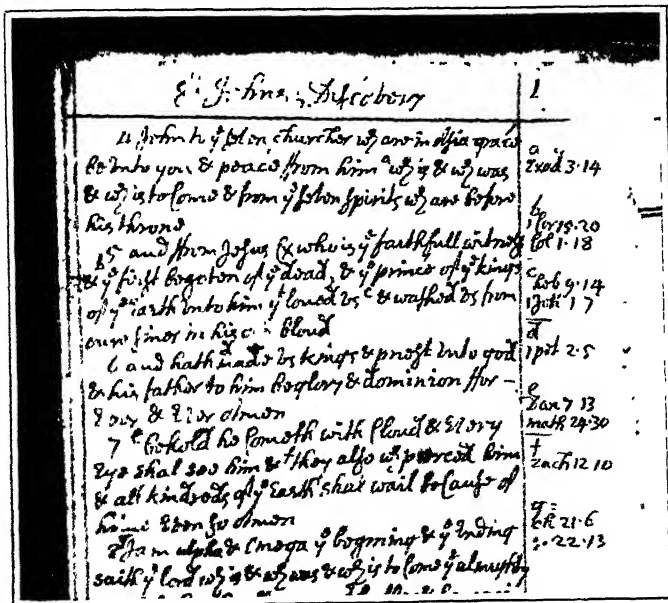 1
4 John to yᵉ seven churches wᶜʰ are in Asia grace
be vnto you & peace ffrom him ᵃ wᶜʰ is & wᶜʰ was
& wᶜʰ is to Come & from yᵉ seven spirits wᶜʰ are before
his throne
ᵇ 5 and ffrom Jesus Cx who is yᵉ faithfull witness
& yᵉ first begotten of yᵉ dead, & yᵉ prince of yᵉ kings
of yᵉ earth vnto him yᵗ loued vs ᶜ & washed vs from
oure sines in his bloud
6 and hath ᵈ made vs kings & priest vnto god
& his father to him be glory & dominion ffor -
Ever & Ever amen
7 ᵉ behold he Cometh with Cloud & Every
Eye shal see him & ᶠ they also wᶜʰ pierced him
& all kindreds of yᵉ Earth shal wail beCause of
him Even so amen
8 ᵍ I am alpha & Omega yᵉ begining & yᵉ Ending
saith yᵉ lord wᶜʰ is & wᶜʰ was & wᶜʰ is to Come yᵉ almighty
a
Exod 3·14
b
1 Cor 15·20
Col 1·18
c
heb 9·14
1 Joh 1 7
d
1 pet 2·5
e
Dan 7 13
math 24·30
f
zach 12 10
g
ch 21·6
22·13